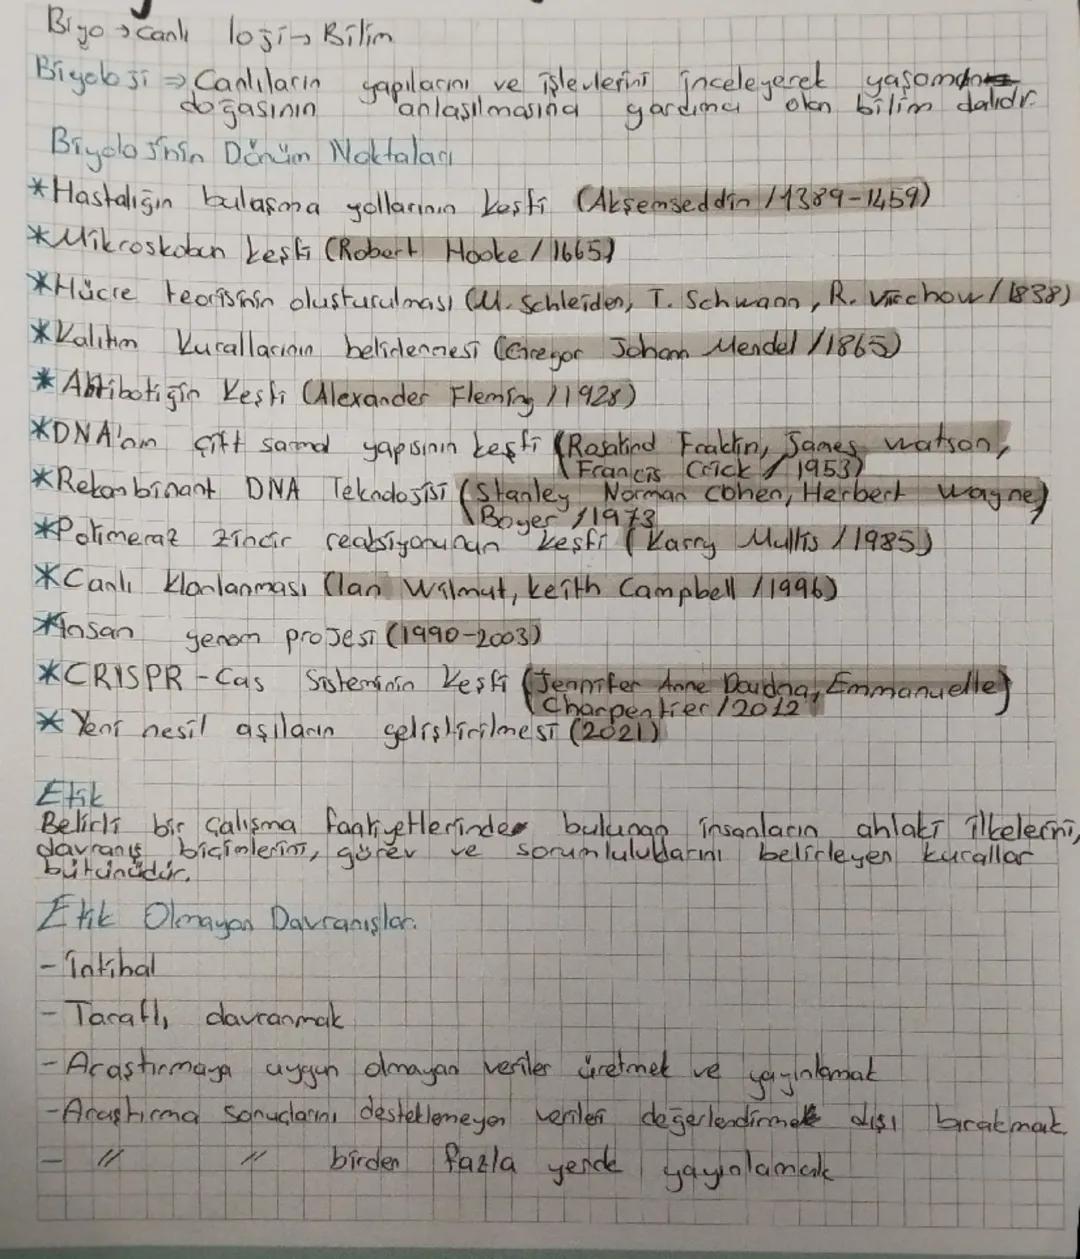 Biyo → canlı loji → Bilim
Biyoloji ⇒ Canlıların yapılarını ve işlevlerini inceleyerek yaşamın
doğasının anlaşılmasına yardımcı olan bilim dalıdır.
Biyoloji'nin Dönüm Noktaları
*Hastalığın bulaşma yollarının keşfi (Akşemseddin / 1389-1459)
*Mikroskobun keşfi (Robert Hooke / 1665)
*Hücre teorisinin oluşturulması (M. Schleiden, T. Schwann, R. Virchow / 1838)
*Kalıtım kurallarının belirlenmesi (Gregor Johann Mendel / 1865)
*Antibotiğin keşfi (Alexander Fleming / 1928)
*DNA'nın çift sarmal yapısının keşfi (Rosalind Fraklin, James watson,
Francis Crick / 1953)
*Rekombinant DNA Teknolojisi (Stanley Norman Cohen, Herbert Wayne
Boyer / 1973)
*Polimeraz zincir reaksiyonunun keşfi (Karry Mullis / 1985)
*Canlı klonlanması (Ian Wilmut, keith Campbell / 1996)
*İnsan genom projesi (1990-2003)
*CRISPR-Cas Sisteminin keşfi (Jennifer Anne Doudna, Emmanuelle
Charpentier / 2012)
*Yeni nesil aşıların geliştirilmesi (2021)
Etik
Belirli bir çalışma faaliyetlerinde bulunan insanların ahlaki ilkelerini,
davranış biçimlerini, görev ve sorumluluklarını belirleyen kurallar
bütünüdür.
Etik Olmayan Davranışlar
- İntihal
- Taraflı davranmak
- Araştırmaya uygun olmayan veriler üretmek ve yayınlamak
- Araştırma sonuçlarını desteklemeyen verileri değerlendirmek dışı bırakmak
- " " birden fazla yerde yayınlamak